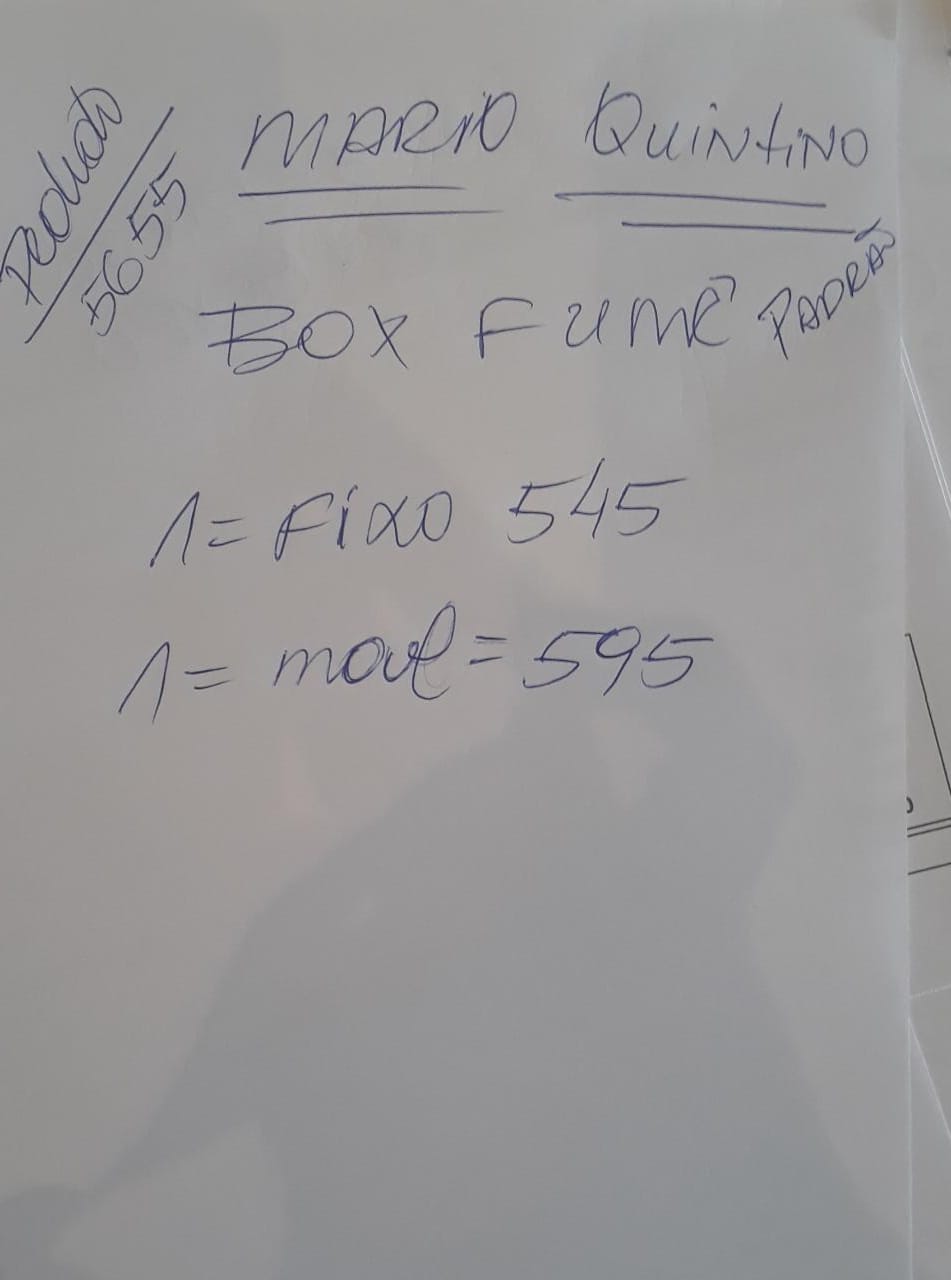 MARIO QUINTINO
Pedido
5655
BOX FUMÊ PADRÃO
1= FIXO 545
1= movel = 595